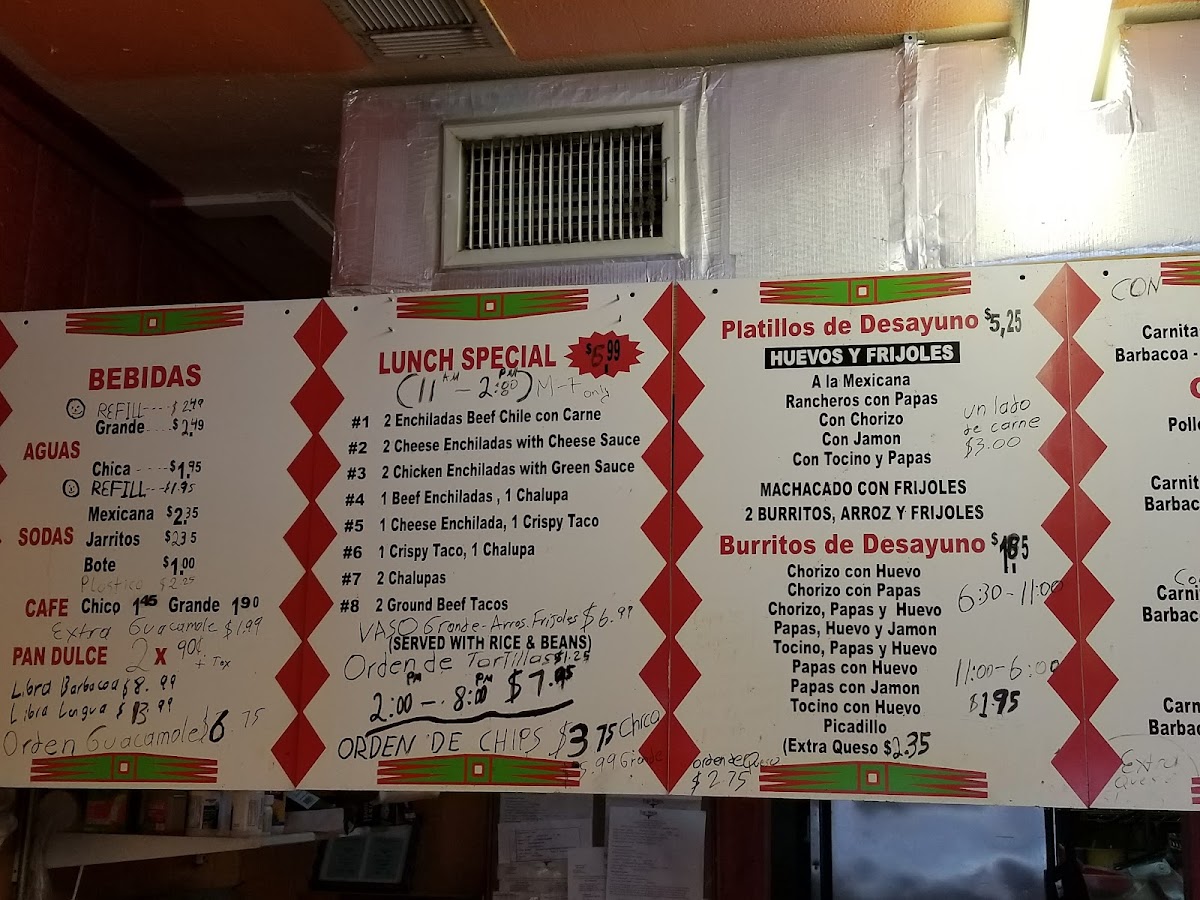 BEBIDAS
REFILL---- $2.49
Grande.....$2.49
AGUAS
Chica ----$1.95
REFILL---$1.95
Mexicana $2.35
SODAS Jarritos $2.35
Bote $1.00
Plastico $2.25
CAFE Chico 1.45 Grande 1.90
Extra Guacamole $1.99
PAN DULCE 2 x 90¢
+ Tax
Libra Barbacoa $8.99
Libra Lengua $13.99
Orden Guacamole $6.75
LUNCH SPECIAL $6.99
(11 AM - 2:00 PM) M-F only
#1 2 Enchiladas Beef Chile con Carne
#2 2 Cheese Enchiladas with Cheese Sauce
#3 2 Chicken Enchiladas with Green Sauce
#4 1 Beef Enchiladas , 1 Chalupa
#5 1 Cheese Enchilada, 1 Crispy Taco
#6 1 Crispy Taco, 1 Chalupa
#7 2 Chalupas
#8 2 Ground Beef Tacos
VASO Grande-Arros.Frijoles $6.99
(SERVED WITH RICE & BEANS)
Orden de Tortillas $1.25
2:00 PM - 8:00 PM $7.95
ORDEN DE CHIPS $3.75 Chica
5.99 Grande
Platillos de Desayuno $5,25
HUEVOS Y FRIJOLES
A la Mexicana
Rancheros con Papas
Con Chorizo
Con Jamon
Con Tocino y Papas
un lado
de carne
$3.00
MACHACADO CON FRIJOLES
2 BURRITOS, ARROZ Y FRIJOLES
Burritos de Desayuno
Chorizo con Huevo
Chorizo con Papas
Chorizo, Papas y Huevo
Papas, Huevo y Jamon
Tocino, Papas y Huevo
Papas con Huevo
Papas con Jamon
Tocino con Huevo
Picadillo
(Extra Queso $2.35
6:30-11:00
11:00-6:00
$1.95
orden de Queso
$2.75
CON
Carnita
Barbacoa -
Pollo
Carnit
Barbac
Carni
Barbac
Carn
Barbac
Extra
Queso